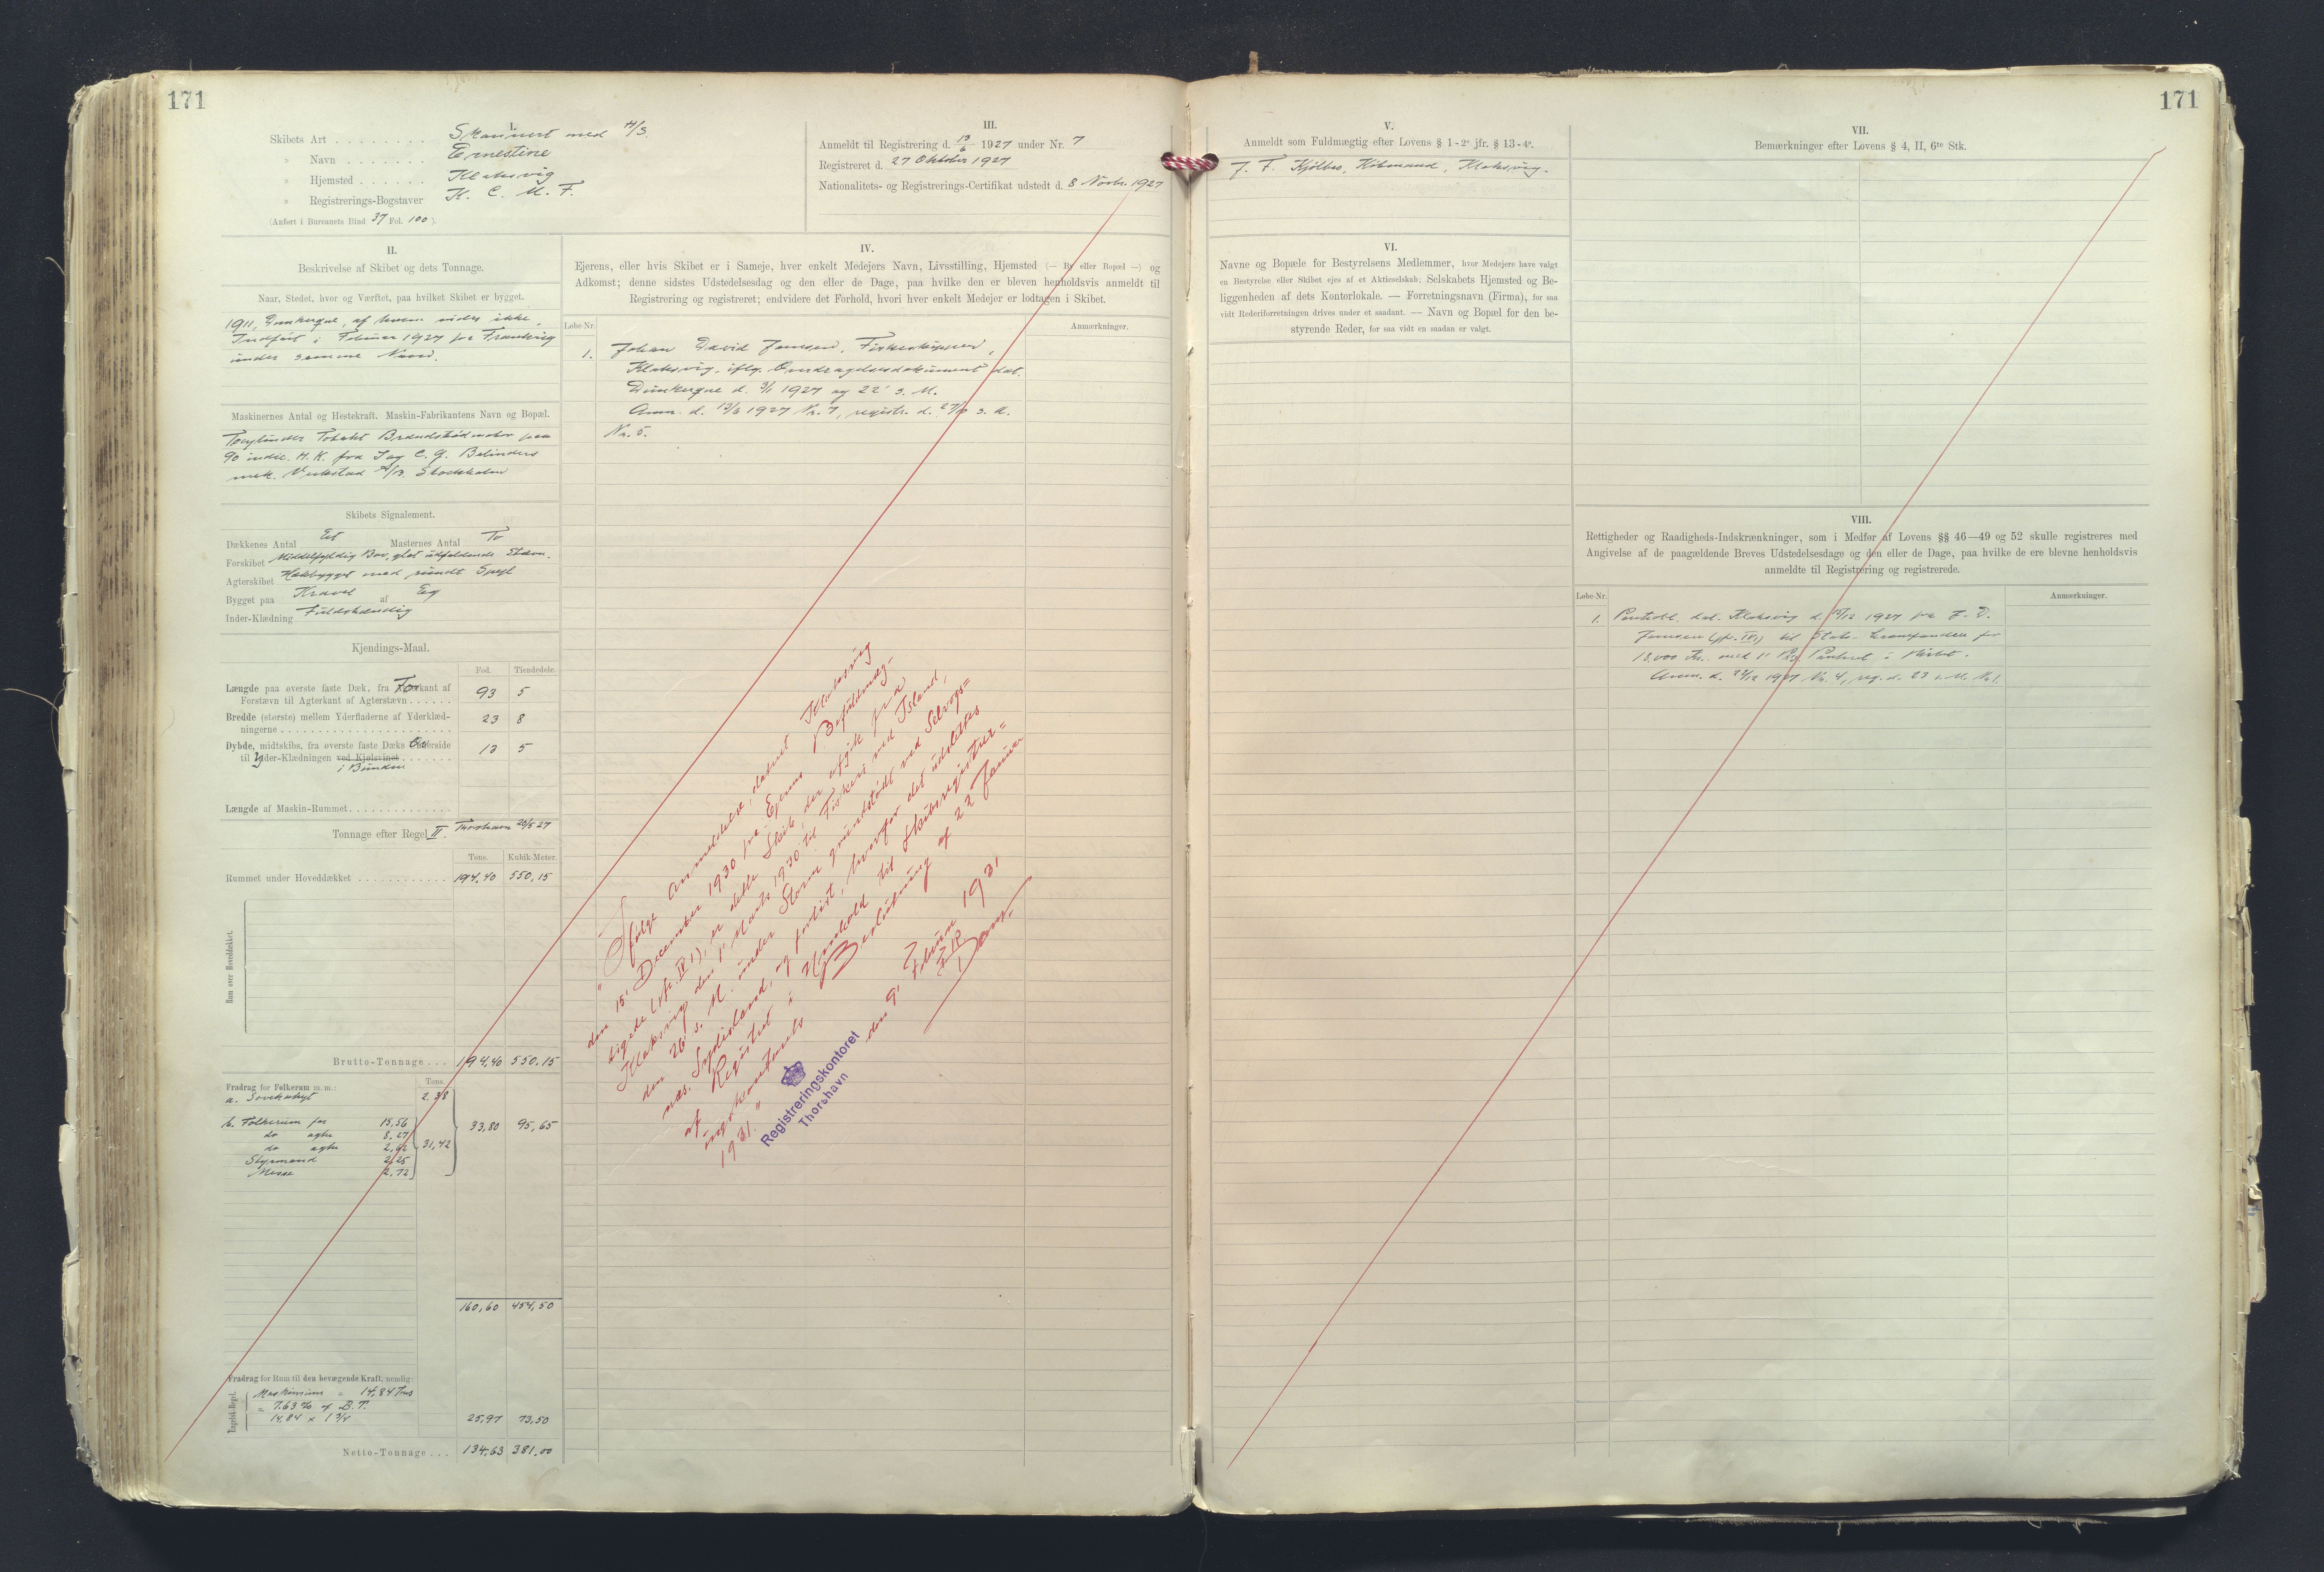 171
I.
Skibets Art . . . . . . . . Skonnert med H/S.
» Navn . . . . . . . Ernestine
» Hjemsted . . . . . . Klaksvig
» Registrerings-Bogstaver K. C. M. F.
(Anført i Bureauets Bind 37 Fol. 100 ).
III.
Anmeldt til Registrering d. 13/6 1927 under Nr. 7
Registreret d. 27 Oktober 1927
Nationalitets- og Registrerings-Certifikat udstedt d. 8 Novbr. 1927
II.
Beskrivelse af Skibet og dets Tonnage.
Naar, Stedet, hvor og Værftet, paa hvilket Skibet er bygget.
1911, Dunkerque, af hvem vides ikke.
Indført i Februar 1927 fra Frankrig
under samme Navn.
Maskinernes Antal og Hestekraft. Maskin-Fabrikantens Navn og Bopæl.
Tocylinder Totakt Brændstofmotor paa
90 indic. H. K. fra J og C. G. Bolinders
mek. Verkstad A/B. Stockholm
Skibets Signalement.
Dækkenes Antal Et Masternes Antal To
Forskibet Middelfyldig Bov, glat udfaldende Stævn.
Agterskibet Hækbygget med rundt Spejl
Bygget paa Kravel af Eg
Inder-Klædning Fuldstændig
Kjendings-Maal.
Fod. Tiendedele.
Længde paa øverste faste Dæk, fra Forkant af
Forstævn til Agterkant af Agterstævn . . . . . . 93 5
Bredde (største) mellem Yderfladerne af Yderklæd-
ningerne . . . . . . . . . . . . . . . . . . 23 8
Dybde, midtskibs, fra øverste faste Dæks Overside
til Yder-Klædningen ved Kjølsvinet . . . . . . . 12 5
i Bunden
Længde af Maskin-Rummet . . . . . . . . . . . . .
Tonnage efter Regel II. Thorshavn 20/5 27
Tons. Kubik-Meter.
Rummet under Hoveddækket . . . . . . . . . . . . 194,40 550,15
Rum over Hoveddækket.
Brutto-Tonnage . . . 194,40 550,15
Fradrag for Folkerum m. m.: Tons.
a. 2.38
b. Folkerum for 15,56
do agter 8,27
do agter 2,62 31,42 33,80 95,65
Styrmand 2,25
Messe 2,72
160,60 454,50
Fradrag for Rum til den bevægende Kraft, nemlig:
Engelsk-Regel.
Maskinrum = 14,84 Tons
= 7.63 % af B.T.
14,84 x 1 3/4 25,97 73,50
Netto-Tonnage . . . 134,63 381,00
IV.
Ejerens, eller hvis Skibet er i Sameje, hver enkelt Medejers Navn, Livsstilling, Hjemsted (— By eller Bopæl —) og
Adkomst; denne sidstes Udstedelsesdag og den eller de Dage, paa hvilke den er bleven henholdsvis anmeldt til
Registrering og registreret; endvidere det Forhold, hvori hver enkelt Medejer er lodtagen i Skibet.
Løbe-Nr. Anmærkninger.
1. Johan David Joensen, Fiskeskipper,
Klaksvig, iflg. Overdragelsesdokument dat.
Dunkerque d. 3/1 1927 og 22' s. M.
Anm. d. 13/6 1927 Nr. 7, registr. d. 27/10 s. A.
Nr. 5.
"Ifølge Anmeldelse, dateret Klaksvig
den 15' December 1930 fra Ejerens Befuldmæg-
tigede (cfr. IV 1), er dette Skib, der afgik fra
Klaksvig den 1' Marts 1930 til Fiskeri ved Island,
den 26' s. M. under Storm grundstødt ved Selvogs=
næs, Sydisland, og forlist, hvorfor det udslettes
af Registret i Henhold til Skibsregistrer=
ingskontorets Beslutning af 22 Januar
1931."
Registreringskontoret
Thorshavn
den 9' Februar 1931
171
V.
Anmeldt som Fuldmægtig efter Lovens § 1-2° jfr. § 13-4°.
J. F. Kjølbro, Købmand, Klaksvig.
VI.
Navne og Bopæle for Bestyrelsens Medlemmer, hvor Medejere have valgt
en Bestyrelse eller Skibet ejes af et Aktieselskab; Selskabets Hjemsted og Be-
liggenheden af dets Kontorlokale. — Forretningsnavn (Firma), for saa
vidt Rederiforretningen drives under et saadant. — Navn og Bopæl for den be-
styrende Reder, for saa vidt en saadan er valgt.
VII.
Bemærkninger efter Lovens § 4, II, 6te Stk.
VIII.
Rettigheder og Raadigheds-Indskrænkninger, som i Medfør af Lovens §§ 46—49 og 52 skulle registreres med
Angivelse af de paagældende Breves Udstedelsesdage og den eller de Dage, paa hvilke de ere blevne henholdsvis
anmeldte til Registrering og registrerede.
Løbe-Nr. Anmærkninger.
1. Panteobl. dat. Klaksvig d. 15/12 1927 fra J. D.
Joensen (jfr. IV 1) til Stats- Laanefonden for
13,000 Kr. med 1' Pr. Panteret i Skibet.
Anm. d. 22/12 1927 Nr. 4, reg. d. 23 s. M. Nr. 1.